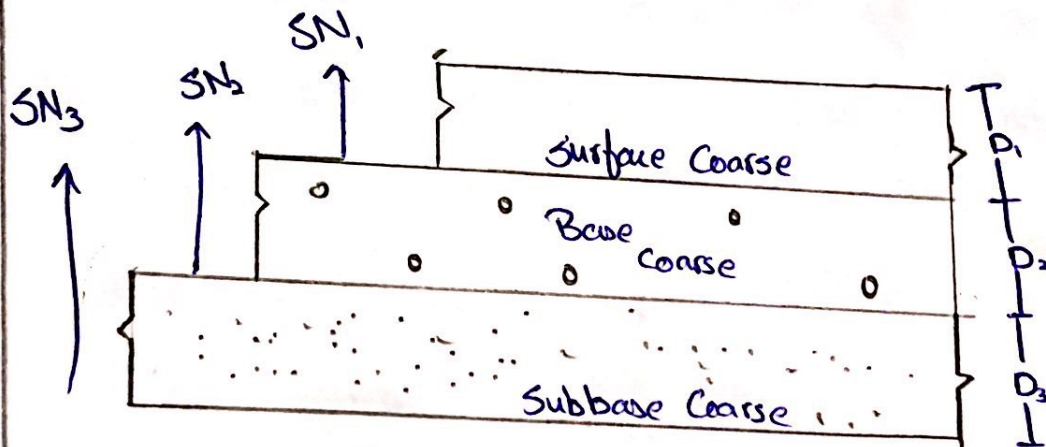 SN₁
SN₂
SN₃
Surface Coarse
D₁
Base
Coarse
D₂
Subbase Coarse
D₃